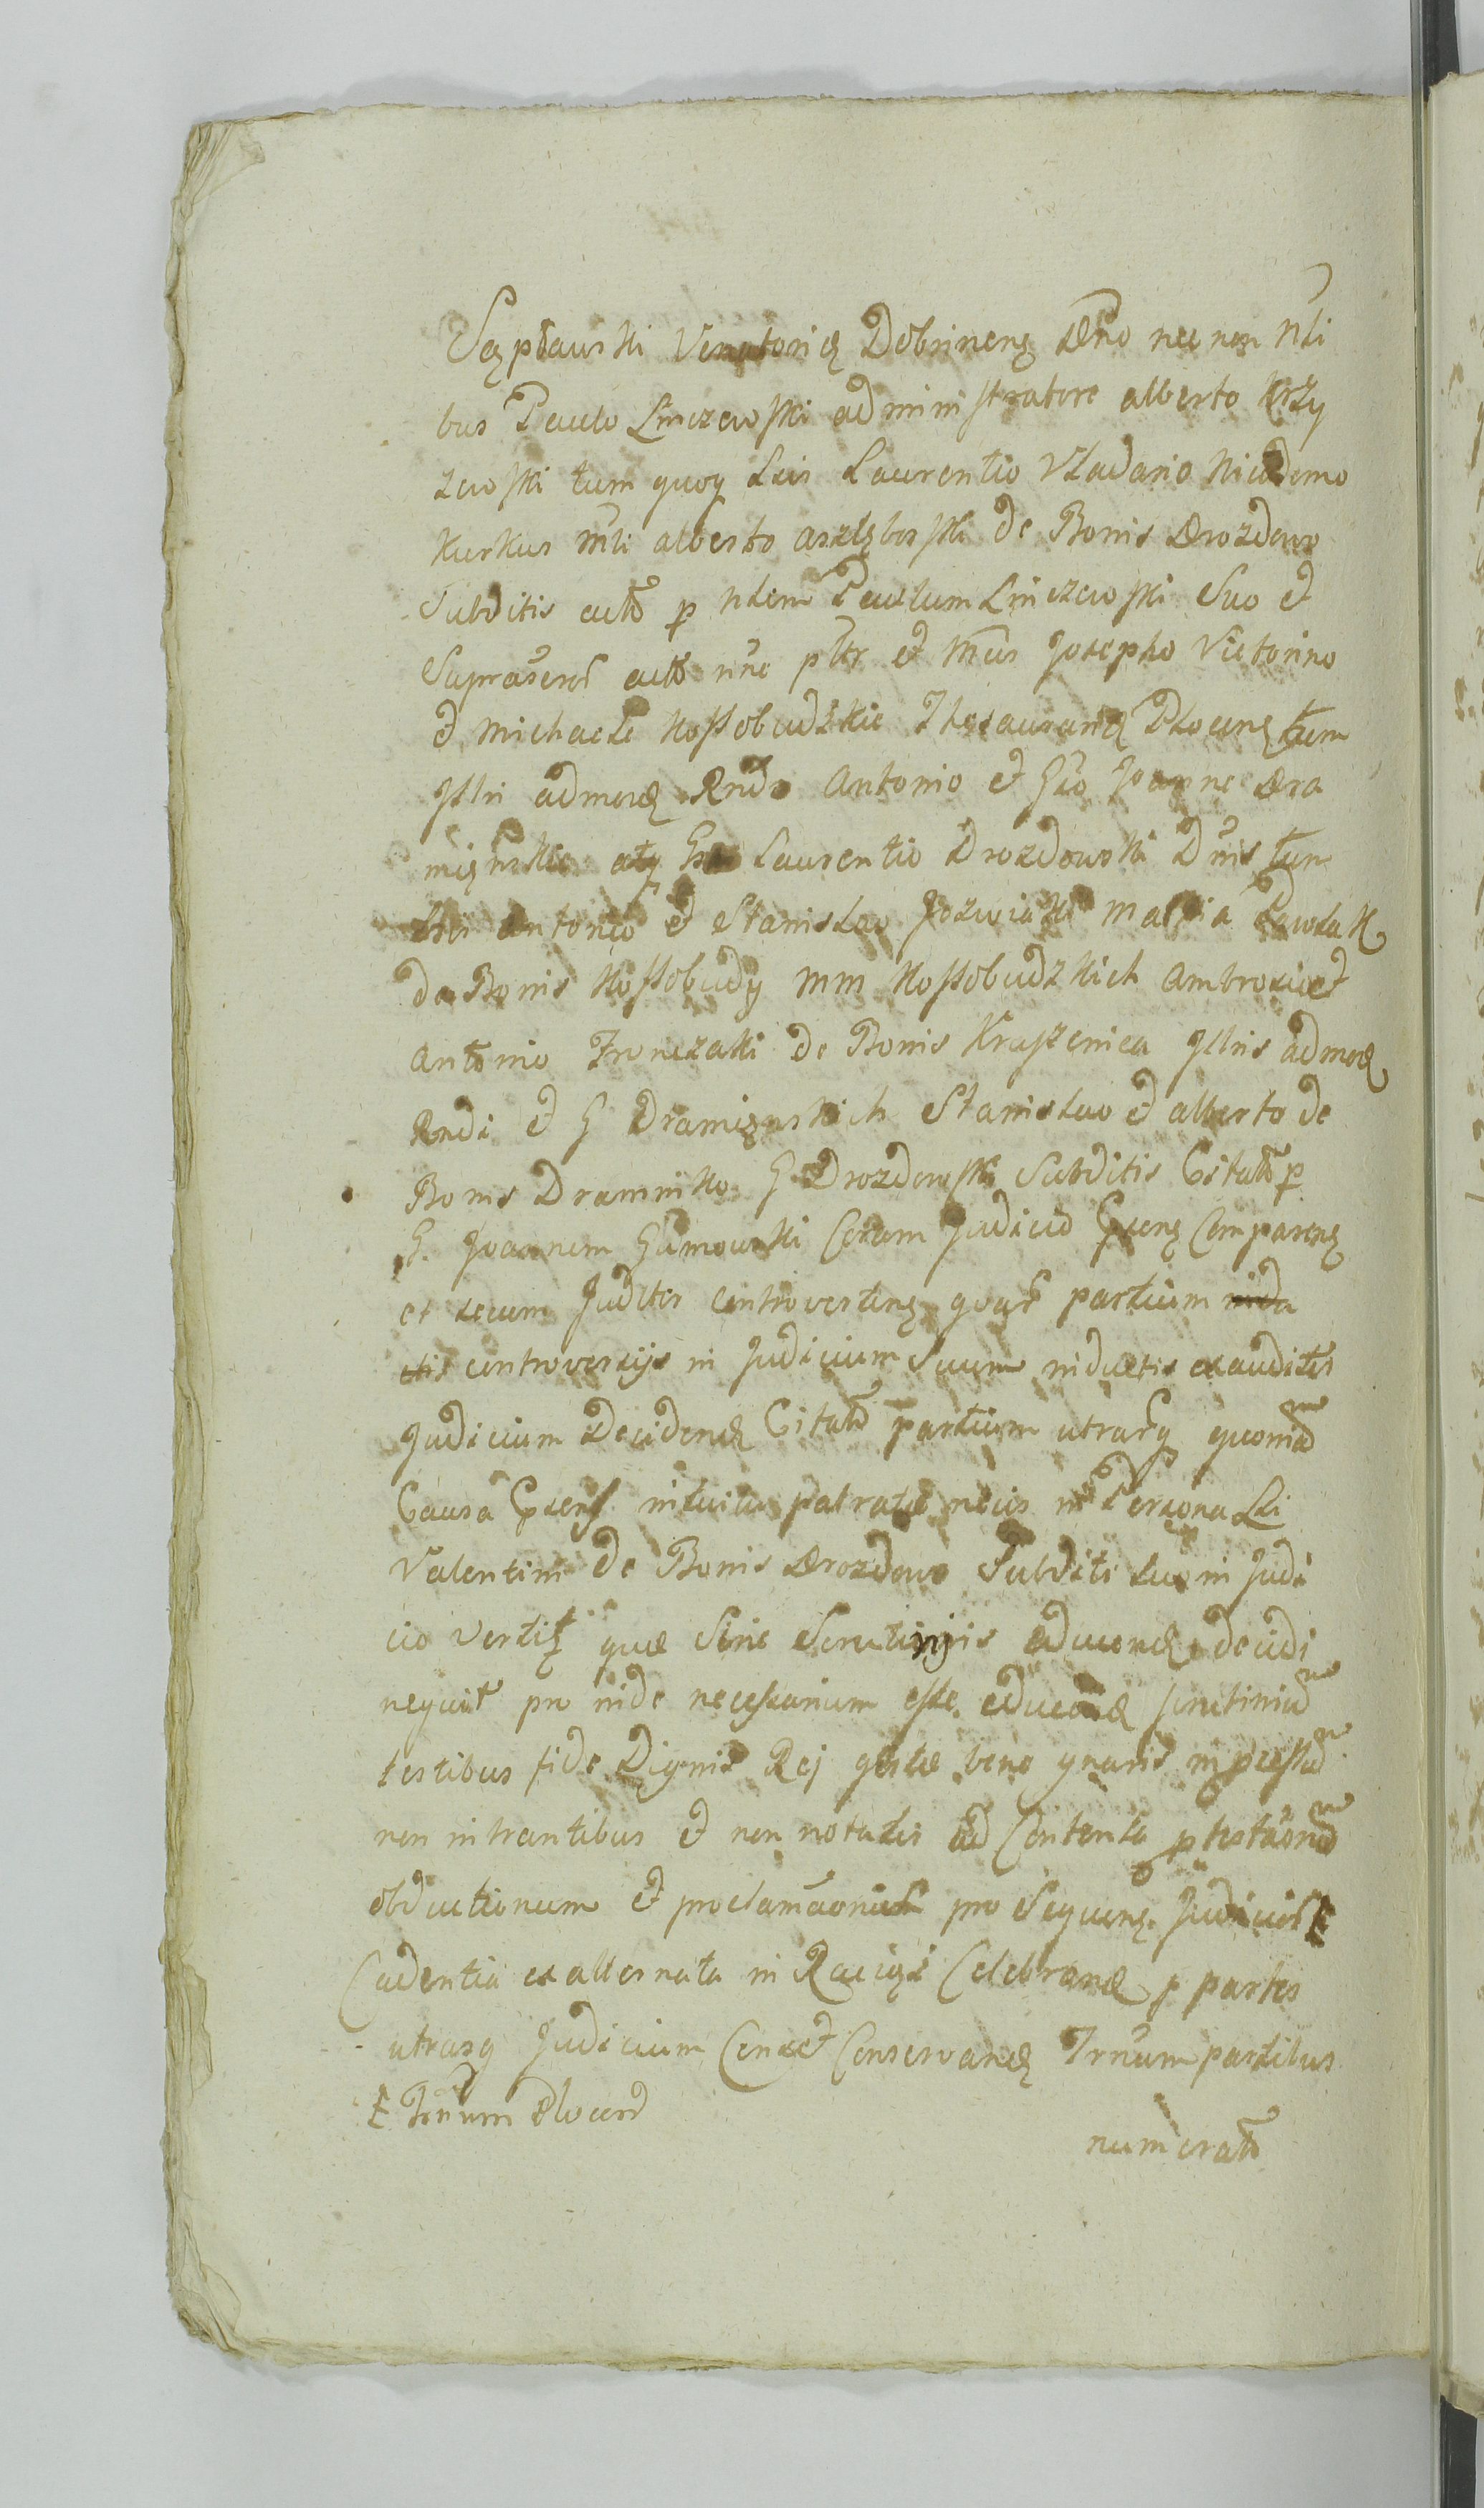 Venatorię Dobrinenę Dno nec non Nli
bus Paulo Linczewski administratore alberto Krzy
zewski tum quoq Lis Laurentio Vładario Nicodemo
Kurkus Nli alberto de Bonis Drozdowo
Subditis actō p Nlem Paulum Linczewski Suo et
actō nnē et Mcis Josepho Victorino
et Michaele Kossobudzkie Thesaurarię Plocenę tum
Jllri admodę Rndo Antonio et Gso Joanne Dra
mięnskie atq Gso Laurentio Drozdowski Dnis tum
Antonio et Stanislao Jozwiaki Mathia Pawlak
de Bonis Kossobudy MM Kossobudzkich Ambrosio et
Antonio Fronczaki de Bonis Kraszenica Jllris admodę
Rndi et G Dramięnskich Stanislao et alberto de
Bonis Draminko G Drozdowski Subditis Citatō p
G. Joannem Gumowski Coram Judicio Comparenę
et secum Juditer Controvertenę quarē partium
controversijs in Judicium Suum inductis exauditis
Judicium Decidendę Citatō partium utrarq quoniā
Causa intuitu patratæ necis in Persona Li
Valentini de Bonis Drozdowo Subditi suo in Judi
cio vertitꝛ quæ Sine Scrutinijs educendę decidi
nequit pro inde necessarium esse educendę scrutiniū
testibus fide Dignis Rej gestæ bene gnaris
non intrantibus et non notatis ad Contenta
obductionum et proclamāonū pro Sequenę. Judicior Ɫ
Cadentia ex alternata in Raciąż Celebrandę p partes
utrasq Judicium Censet Conservandę Trnum partibus
Ɫ Trnum
numeratō